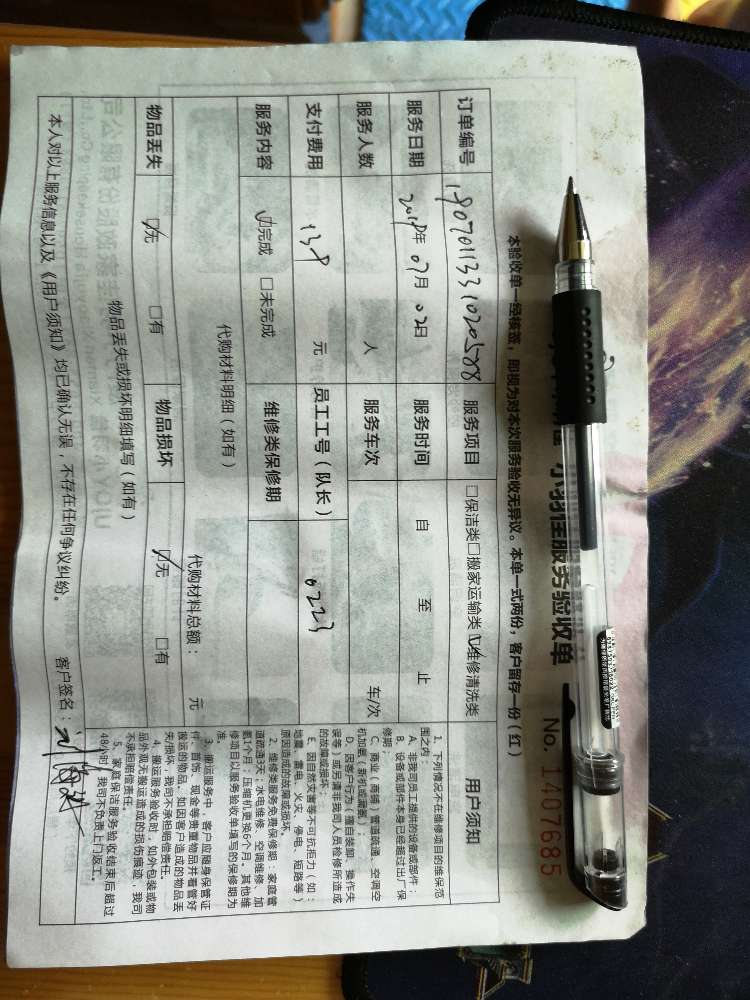 小羽佳服务验收单
No. 1407685
本验收单一经核签，即视为对本次服务验收无异议。本单一式两份，客户留存一份（红）
订单编号 服务项目 □保洁类□搬家运输类☑维修清洗类
服务日期 年 07月 02日 服务时间 自 至 止
服务人数 人 服务车次 车/次
支付费用 138 元 员工工号（队长） 0223
服务内容 ☑完成 □未完成 维修类保修期
代购材料明细（如有）
代购材料总额： 元
物品丢失 ☑无 □有 物品损坏 ☑无 □有
物品丢失或损坏明细填写（如有）
本人对以上服务信息以及《用户须知》均已确认无误，不存在任何争议纠纷。 客户签名：
用户须知
1、下列情况不在维修项目的维保范
围之内：
A、非我司员工提供的设备或部件；
B、设备或部件本身已经超过出厂保
修期；
C、商业（商铺）管道疏通，空调空
机加氟（新机或漏氟）；
D、因用户行为（擅自装卸、操作失
误等）或用户请非我司人员检修所造成
的故障或损坏。
E、因自然灾害等不可抗拒力（如：
地震、雷电、火灾、停电、短路等）
原因造成的故障或损坏。
2、维修类服务免费保修期：家庭管
道疏通3天；水电维修、空调维修、加
氟1个月；压缩机更换6个月。其他维
修项目以服务验收单填写的保修期为
准。
3、搬运服务中，客户应随身保管证
件、首饰、现金等贵重物品并看管好
搬运的物品，如因客户造成的物品丢
失/损坏，我司不承担赔偿责任。
4、搬运服务验收时，如外包装或物
品外观无搬运造成的损伤痕迹，我司
不承担赔偿责任。
5、家庭保洁服务验收结束后超过
48小时，我司不负责上门返工。